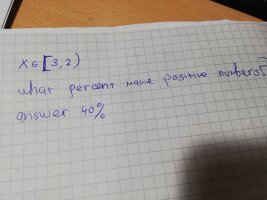 x ∈ [3,2)
what percent have positive numbers?
answer 40%